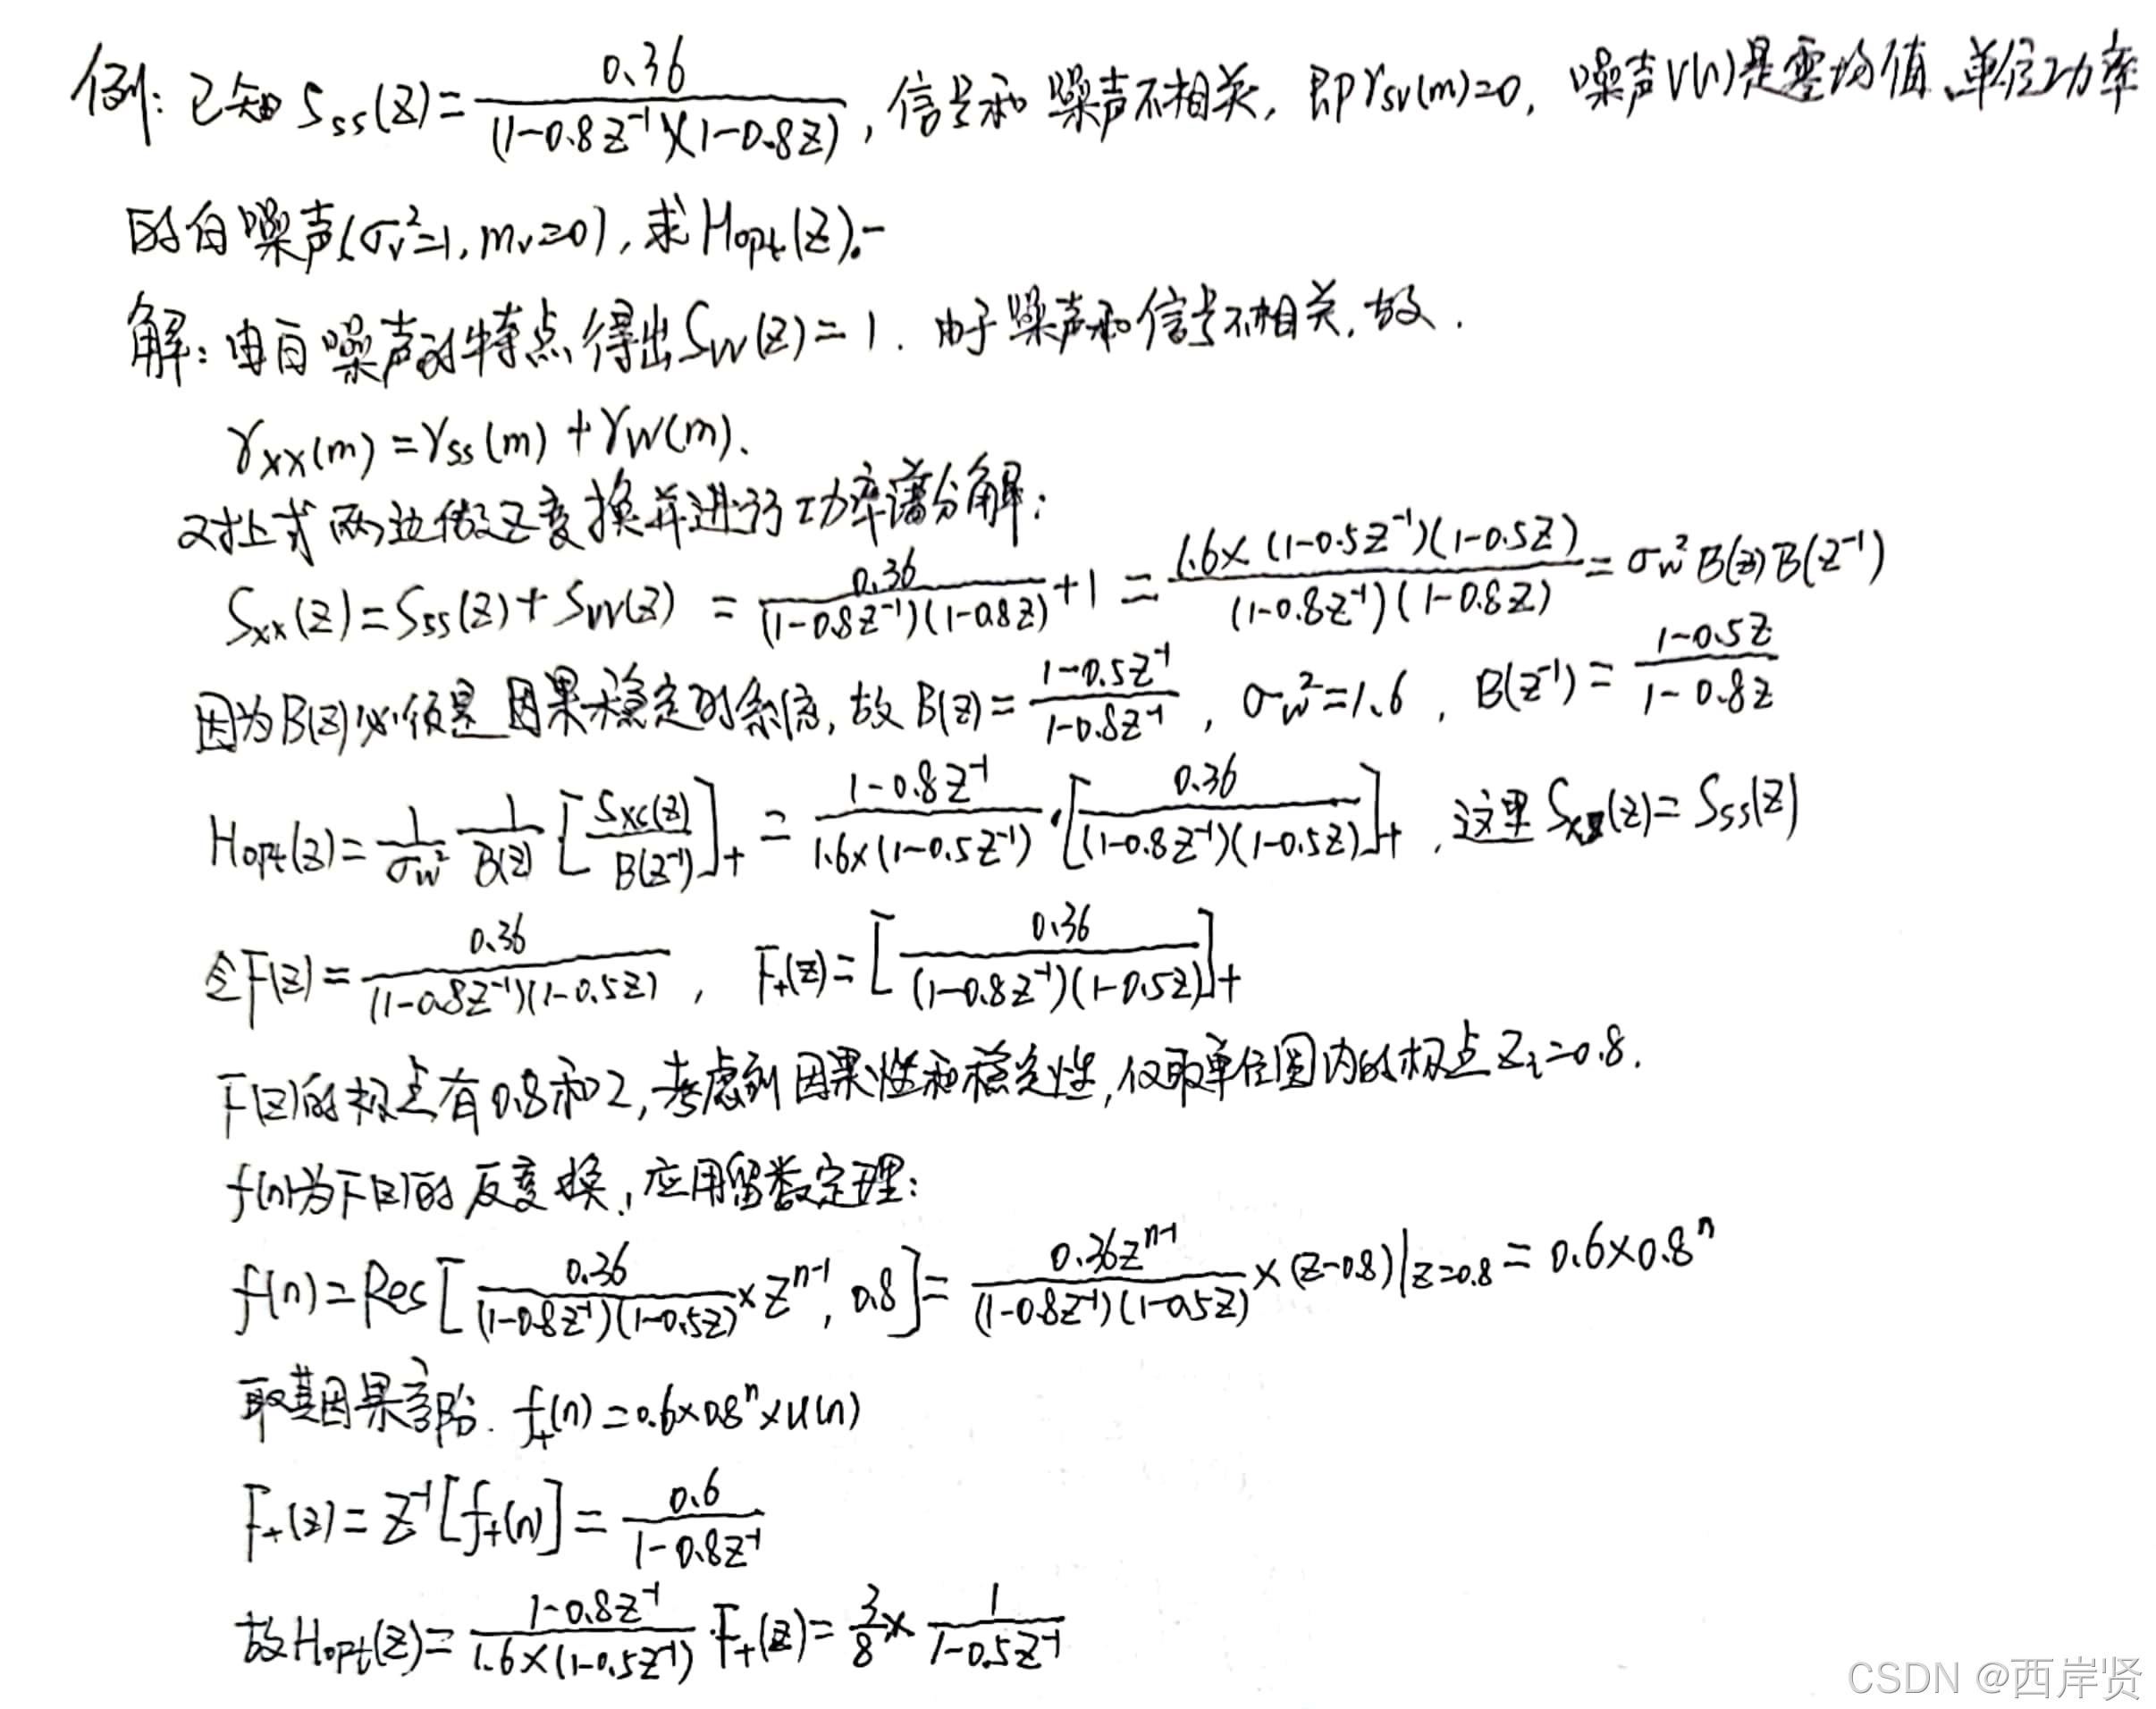 例: 已知 Sss(z) = 0.36 / ((1-0.8z⁻¹)(1-0.8z)), 信号和噪声不相关, 即γsv(m)=0, 噪声v(n)是零均值、单位功率
的白噪声(σv²=1, mv=0), 求Hopt(z).
解: 由白噪声的特点得出Svv(z)=1. 由于噪声和信号不相关, 故.
γxx(m)=γss(m)+γvv(m).
对上式两边做Z变换并进行功率谱分解:
Sxx(z)=Sss(z)+Svv(z) = 0.36 / ((1-0.8z⁻¹)(1-0.8z)) + 1 = 1.6×(1-0.5z⁻¹)(1-0.5z) / ((1-0.8z⁻¹)(1-0.8z)) = σw² B(z) B(z⁻¹)
因为B(z)必须是因果稳定的系统, 故 B(z) = (1-0.5z⁻¹) / (1-0.8z⁻¹), σw²=1.6, B(z⁻¹) = (1-0.5z) / (1-0.8z)
Hopt(z) = 1/σw² 1/B(z) [Sxs(z) / B(z⁻¹)]+ = (1-0.8z⁻¹) / (1.6×(1-0.5z⁻¹)) · [0.36 / ((1-0.8z⁻¹)(1-0.5z))]+, 这里 Sxs(z) = Sss(z)
令F(z) = 0.36 / ((1-0.8z⁻¹)(1-0.5z)), F+(z) = [0.36 / ((1-0.8z⁻¹)(1-0.5z))]+
F(z)的极点有0.8和2, 考虑到因果性和稳定性, 仅取单位圆内的极点 zi=0.8.
f(n)为F(z)的反变换, 应用留数定理:
f(n) = Res[0.36 / ((1-0.8z⁻¹)(1-0.5z)) × zⁿ⁻¹, 0.8] = 0.36zⁿ⁻¹ / ((1-0.8z⁻¹)(1-0.5z)) × (z-0.8)|z=0.8 = 0.6×0.8ⁿ
取其因果部分. f+(n)=0.6×0.8ⁿ×u(n)
F+(z) = Z⁻¹[f+(n)] = 0.6 / (1-0.8z⁻¹)
故Hopt(z) = (1-0.8z⁻¹) / (1.6×(1-0.5z⁻¹)) · F+(z) = 3/8 × 1 / (1-0.5z⁻¹)
CSDN @西岸贤